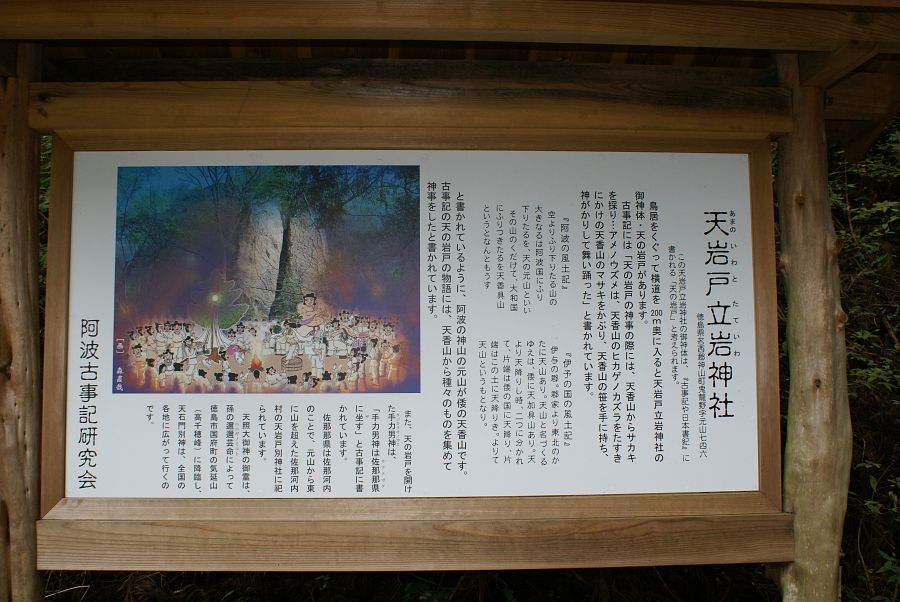 天岩戸立岩神社
あまの いわ と たて いわ
徳島県名西郡神山町鬼籠野字元山七四六
この天岩戸立岩神社の御神体は、『古事記や日本書紀』に
書かれる「天の岩戸」と考えられます。
鳥居をくぐって横道を200m奥に入ると天岩戸立岩神社の
御神体・天の岩戸があります。
古事記には「天の岩戸の神事の際には、天香山からサカキ
を採り…アメノウズメは、天香山のヒカゲノカズラをたすき
にかけの天香山のマサキをかぶり、天香山の笹を手に持ち、
神がかりして舞い踊った」と書かれています。
『阿波の風土記』
空よりふり下りたる山の
大きなるは阿波国にふり
下りたるを、天の元山といい
その山のくだけて、大和国
にふりつきたるを天香具山
というとなんともうす
『伊予の国の風土記』
伊与の郡。郡家より東北のか
たに天山あり。天山と名づくる
ゆえは、倭に天加具山あり。天
より天降りし時、二つに分かれ
て、片端は倭の国に天降り、片
端はこの土に天降りき。よりて
天山というもとなり。
と書かれているように、阿波の神山の元山が倭の天香山です。
古事記の天の岩戸の物語には、天香山から種々のものを集めて
神事をしたと書かれています。
[画]
また、天の岩戸を開け
た手力男神は、
「手力男神は佐那那県
に坐す」と古事記に書
かれています。
佐那那県は佐那河内
のことで、元山から東
に山を超えた佐那河内
村の天岩戸別神社に祀
られています。
天照大御神の御霊は、
孫の邇邇芸命によって
徳島市国府町の気延山
（高千穂峰）に降臨し、
天石門別神は、全国の
各地に広がって行くの
です。
阿波古事記研究会